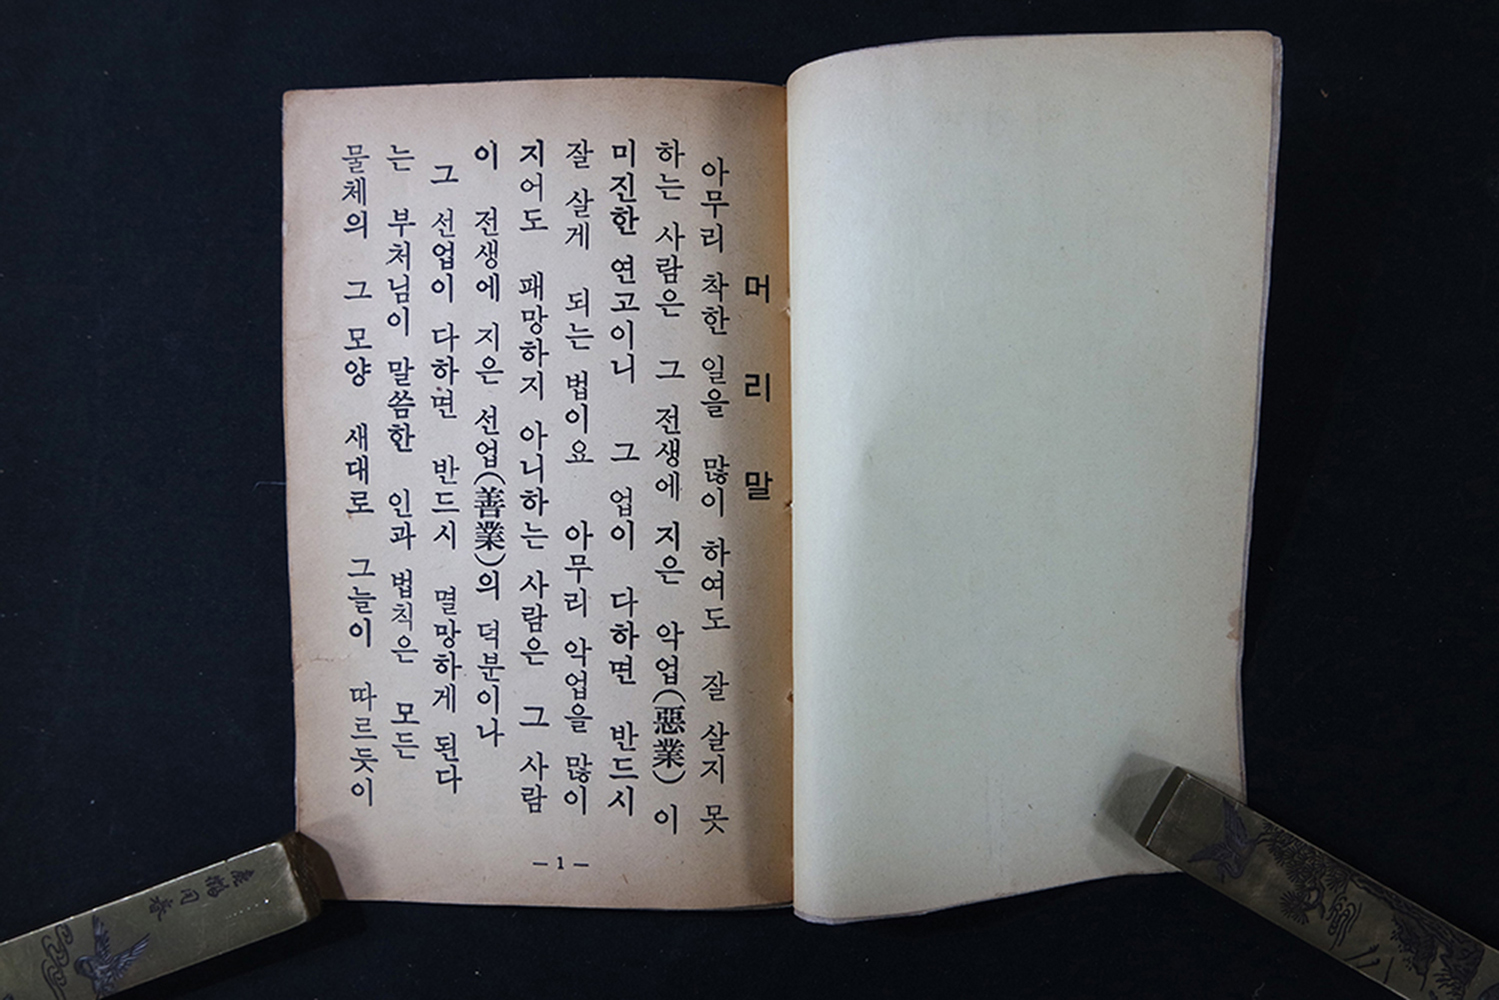 머리말
아무리 착한 일을 많이 하여도 잘 살지 못
하는 사람은 그 전생에 지은 악업(惡業)이
미진한 연고이니 그 업이 다하면 반드시
잘 살게 되는 법이요 아무리 악업을 많이
지어도 패망하지 아니하는 사람은 그 사람
이 전생에 지은 선업(善業)의 덕분이나
그 선업이 다하면 반드시 멸망하게 된다
는 부처님이 말씀한 인과 법칙은 모든
물체의 그 모양 새대로 그늘이 따르듯이
— 1 —